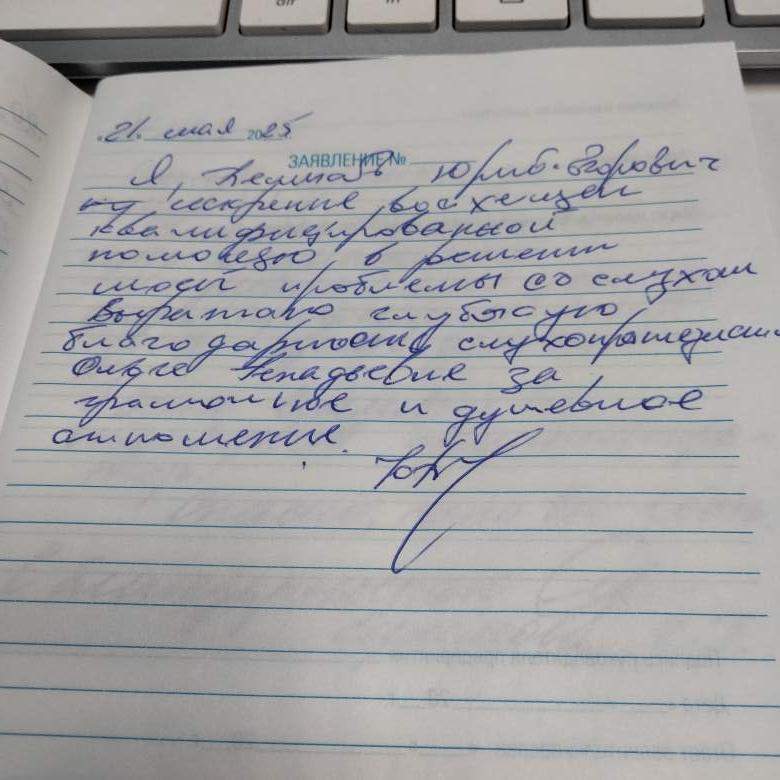 21. мая 2025
ЗАЯВЛЕНИЕ №
Я, Юрий Егорович
искренне восхищен
квалифицированной
помощью в решении
моей проблемы со слухом
Выражаю глубокую
благодарность слухопротезисту
Ольге Генадьевне за
грамотное и душевное
отношение.